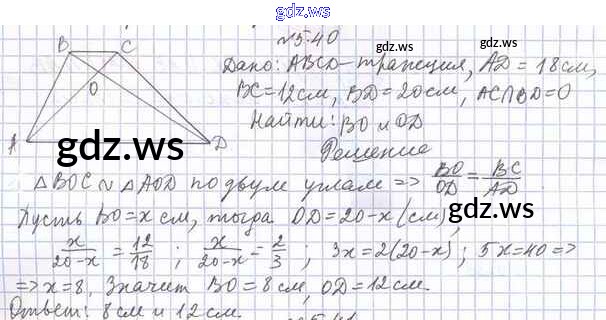 gdz.ws
№5.40
B C
Дано: ABCD-трапеция, AD = 18 см,
gdz.ws
O
BC = 12 см, BD = 20 см, AC∩BD=O
Найти: BO и OD
A D
gdz.ws
Решение
gdz.ws
△BOC ~ △AOD по двум углам => BO/OD = BC/AD
Пусть BO = x см, тогда OD = 20-x (см)
x/20-x = 12/18 ; x/20-x = 2/3 ; 3x=2(20-x) ; 5x=40 =>
=> x=8. Значит BO = 8 см, OD = 12 см.
Ответ: 8 см и 12 см.
gdz.ws